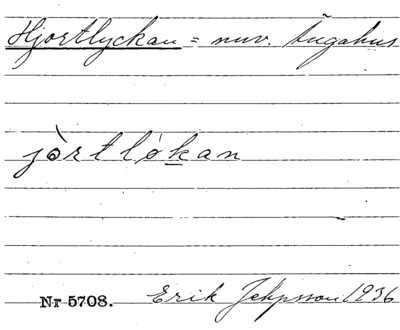 Hjortlyckan = nuv. Ängahus
jòrtló̱kan
Nr 5708. Erik Jepsson 1936